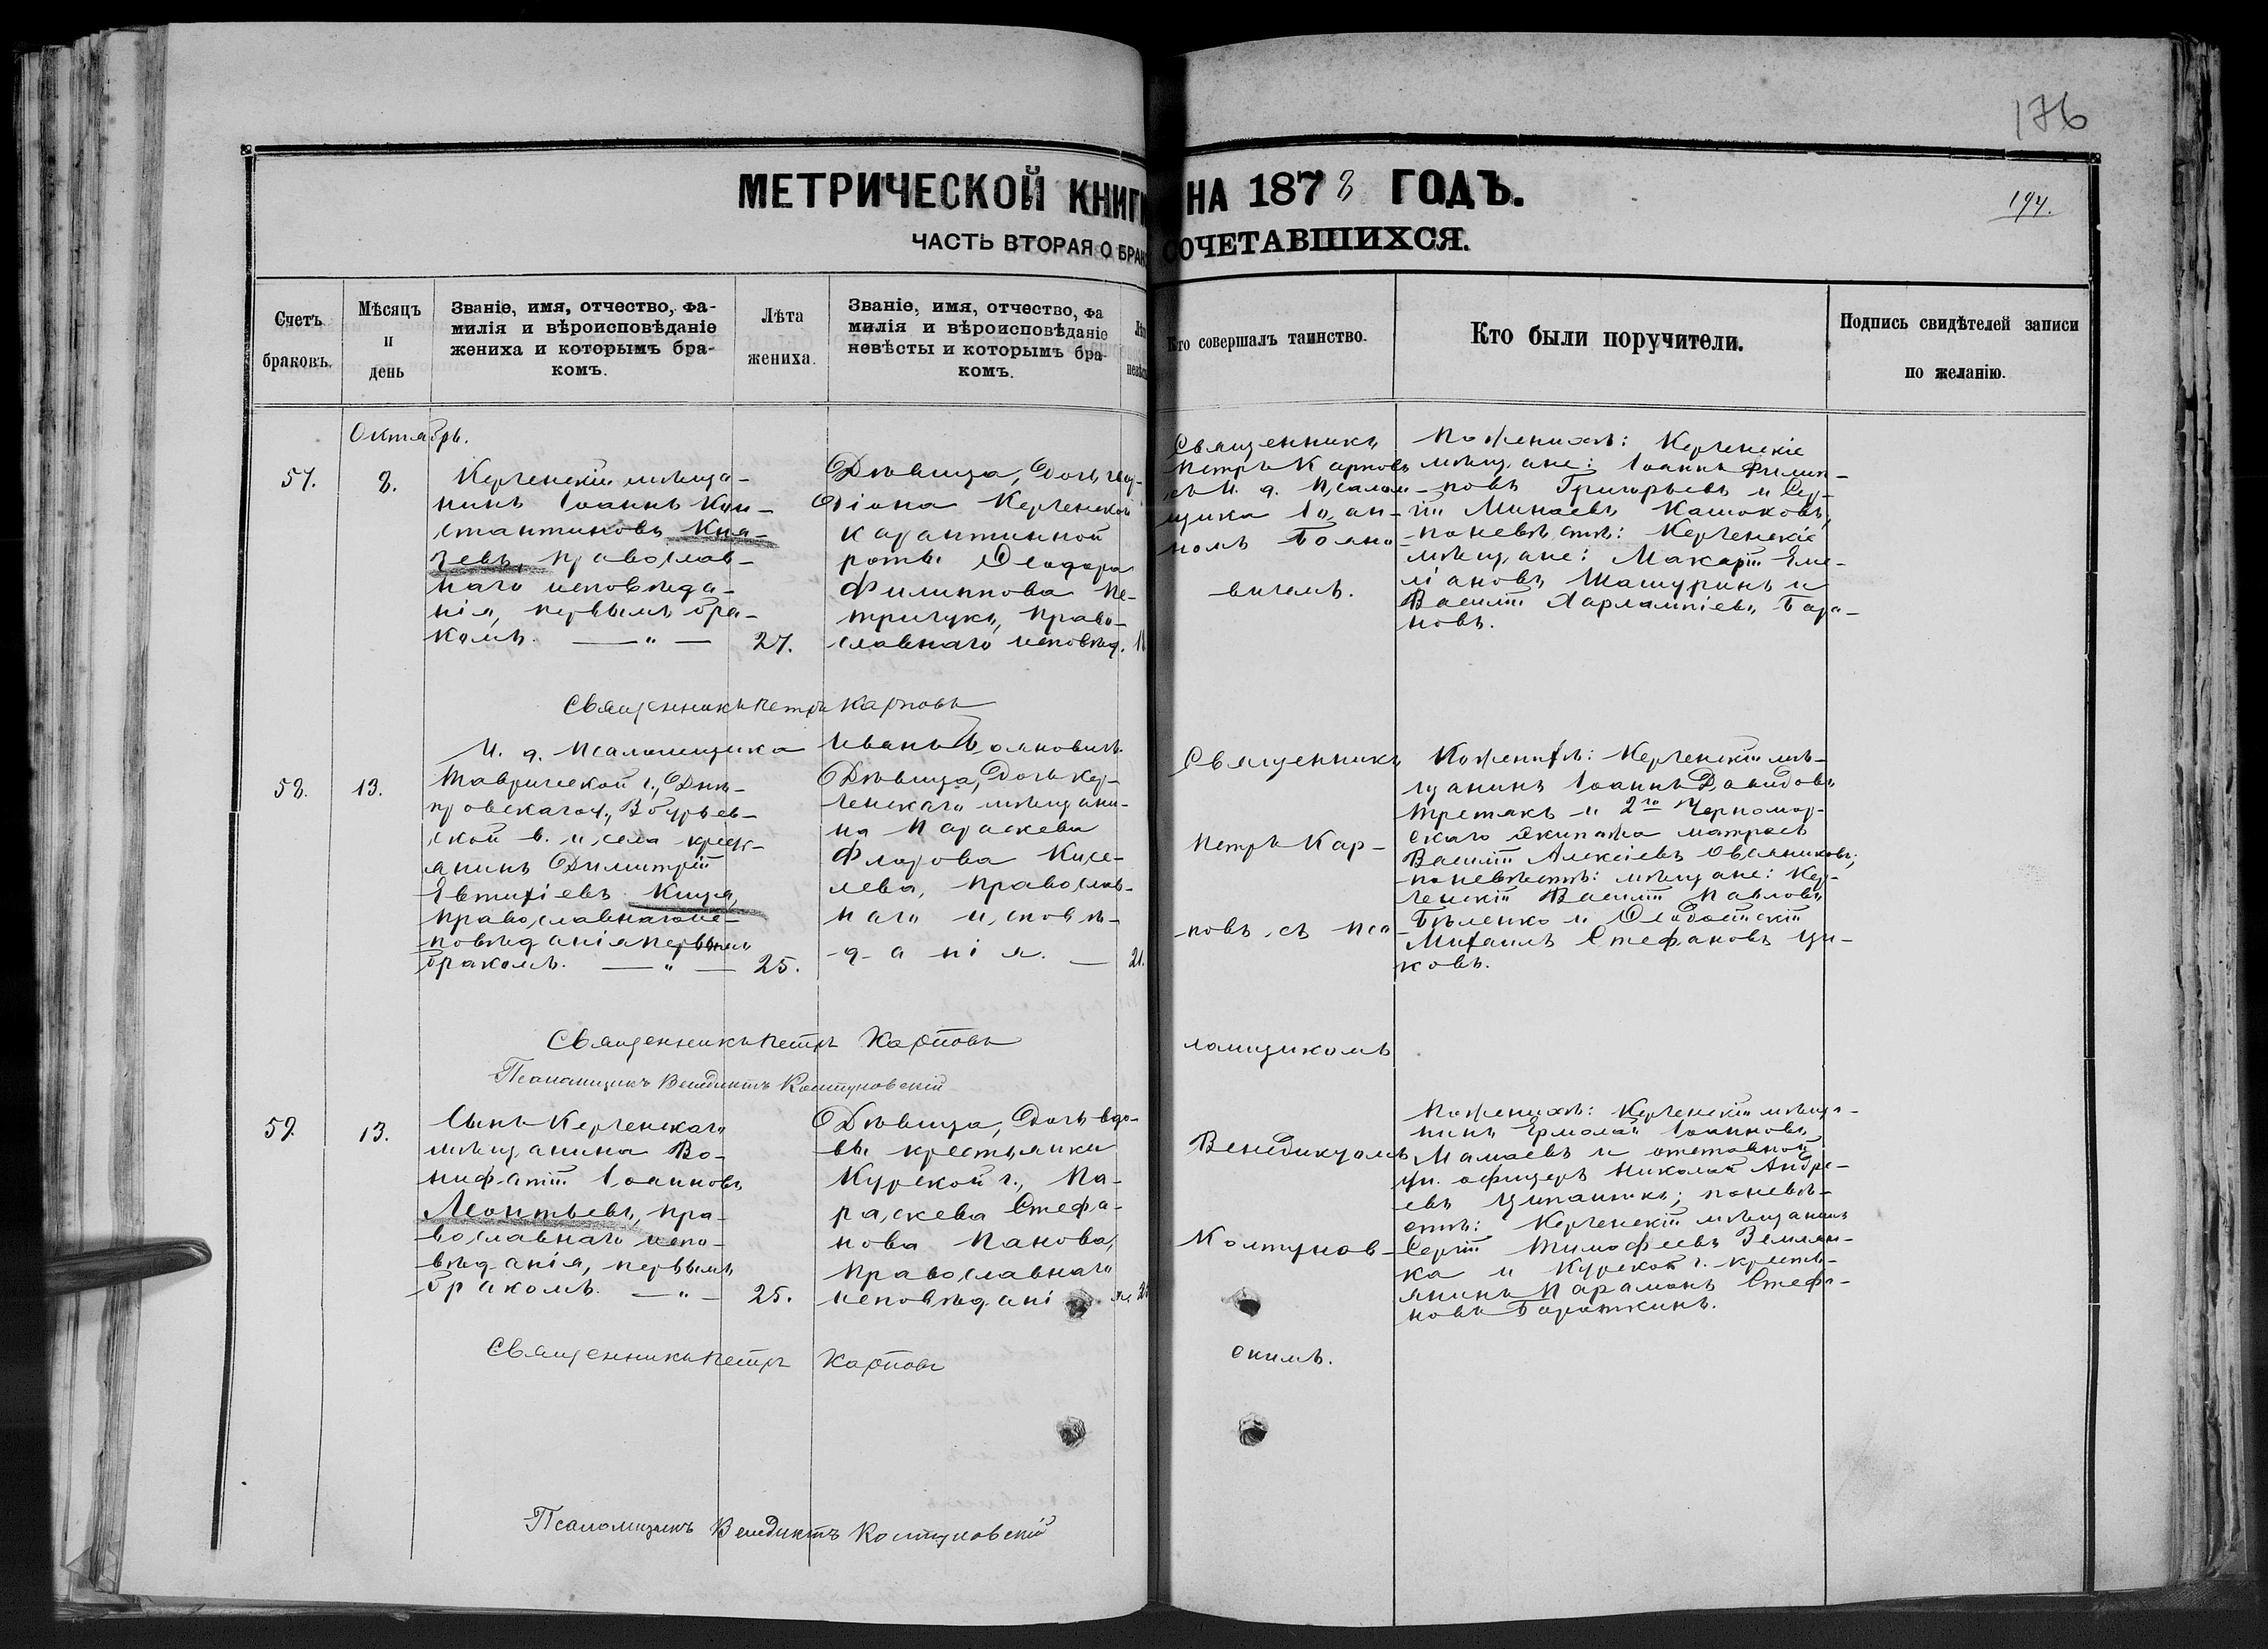 176
МЕТРИЧЕСКОЙ КНИГИ НА 1878 ГОДЪ.
194.
ЧАСТЬ ВТОРАЯ О БРАКО СОЧЕТАВШИХСЯ.
Счетъ браковъ.
Мѣсяцъ и день
Званіе, имя, отчество, фа-
милія и вѣроисповѣданіе
жениха и которымъ бра-
комъ.
Лѣта
жениха.
Званіе, имя, отчество, фа
милія и вѣроисповѣданіе
невѣсты и которымъ бра-
комъ.
Кто совершалъ таинство.
Кто были поручители.
Подпись свидѣтелей записи
по желанію.
Октябрь.
57.
8.
Керченскій мѣща-
нинъ Іоаннъ Кон-
стантиновъ Кня-
зевъ, православ-
наго исповѣда-
нія, первымъ бра-
комъ. — „ —
27.
Дѣвица, дочь
Керченской
карантинной
роты Ѳеодора
Филиппова Пе-
тричукъ, право-
славнаго исповѣд.
Священникъ
Петръ Карповъ
съ И. д. Псалом-
щика Іоан-
номъ Бояно-
вичемъ.
По женихѣ: Керченскіе
мѣщане: Іоаннъ Филип-
повъ Григорьевъ и Сер-
гій Минаевъ Кашоковъ,
по невѣстѣ: Керченскіе
мѣщане: Макарій Еме-
ліановъ Машуринъ и
Василій Харлампіевъ Бара-
новъ.
Священникъ Петръ Карповъ
И. д. Псаломщика Иванъ Бояновичъ.
58.
13.
Таврической г., Днѣ-
провскаго у.,
ской в. и села крест-
янинъ Димитрій
Евтихіевъ Куца,
православнаго ис-
повѣданія первымъ
бракомъ. — „ —
25.
Дѣвица, дочь Кер-
ченскаго мѣщани-
на Параскева
Флорова Кисе-
лева, православ-
наго исповѣ-
данія. —
21.
Священникъ
Петръ Кар-
повъ съ Пса-
ломщикомъ
Венедиктомъ
Колтунов-
скимъ.
По женихѣ: Керченскій мѣ-
щанинъ Іоаннъ Давидовъ
Третякъ и 2го Черномор-
скаго экипажа матросъ
Василій Алексіевъ Овсяниковъ;
по невѣстѣ: мѣщане: Кер-
ченскій Василій Павловъ
Бѣленко и Ѳеодосійскій
Михаилъ Стефановъ Цы-
ковъ.
Священникъ Петръ Карповъ
Псаломщикъ Венедиктъ Колтуновскій
59.
13.
Сынъ Керченскаго
мѣщанина Во-
нифатій Іоанновъ
Леонтьевъ, пра-
вославнаго испо-
вѣданія, первымъ
бракомъ. — „ —
25.
Дѣвица, дочь вдо-
вы крестьянки
Курской г., Па-
раскева Стефа-
нова Панова,
православнаго
исповѣдані
По женихѣ: Керченскій мѣща-
нинъ Ермолай Іоанновъ
Мамаевъ и отставной
ун. офицеръ Николай Андре-
евъ по невѣ-
стѣ: Керченскій мѣщанинъ
Сергій Тимофеевъ Землян-
ка и Курской г. кресть-
янинъ Парамонъ Стефа-
новъ Бароткинъ.
Священникъ Петръ Карповъ
Псаломщикъ Венедиктъ Колтуновскій